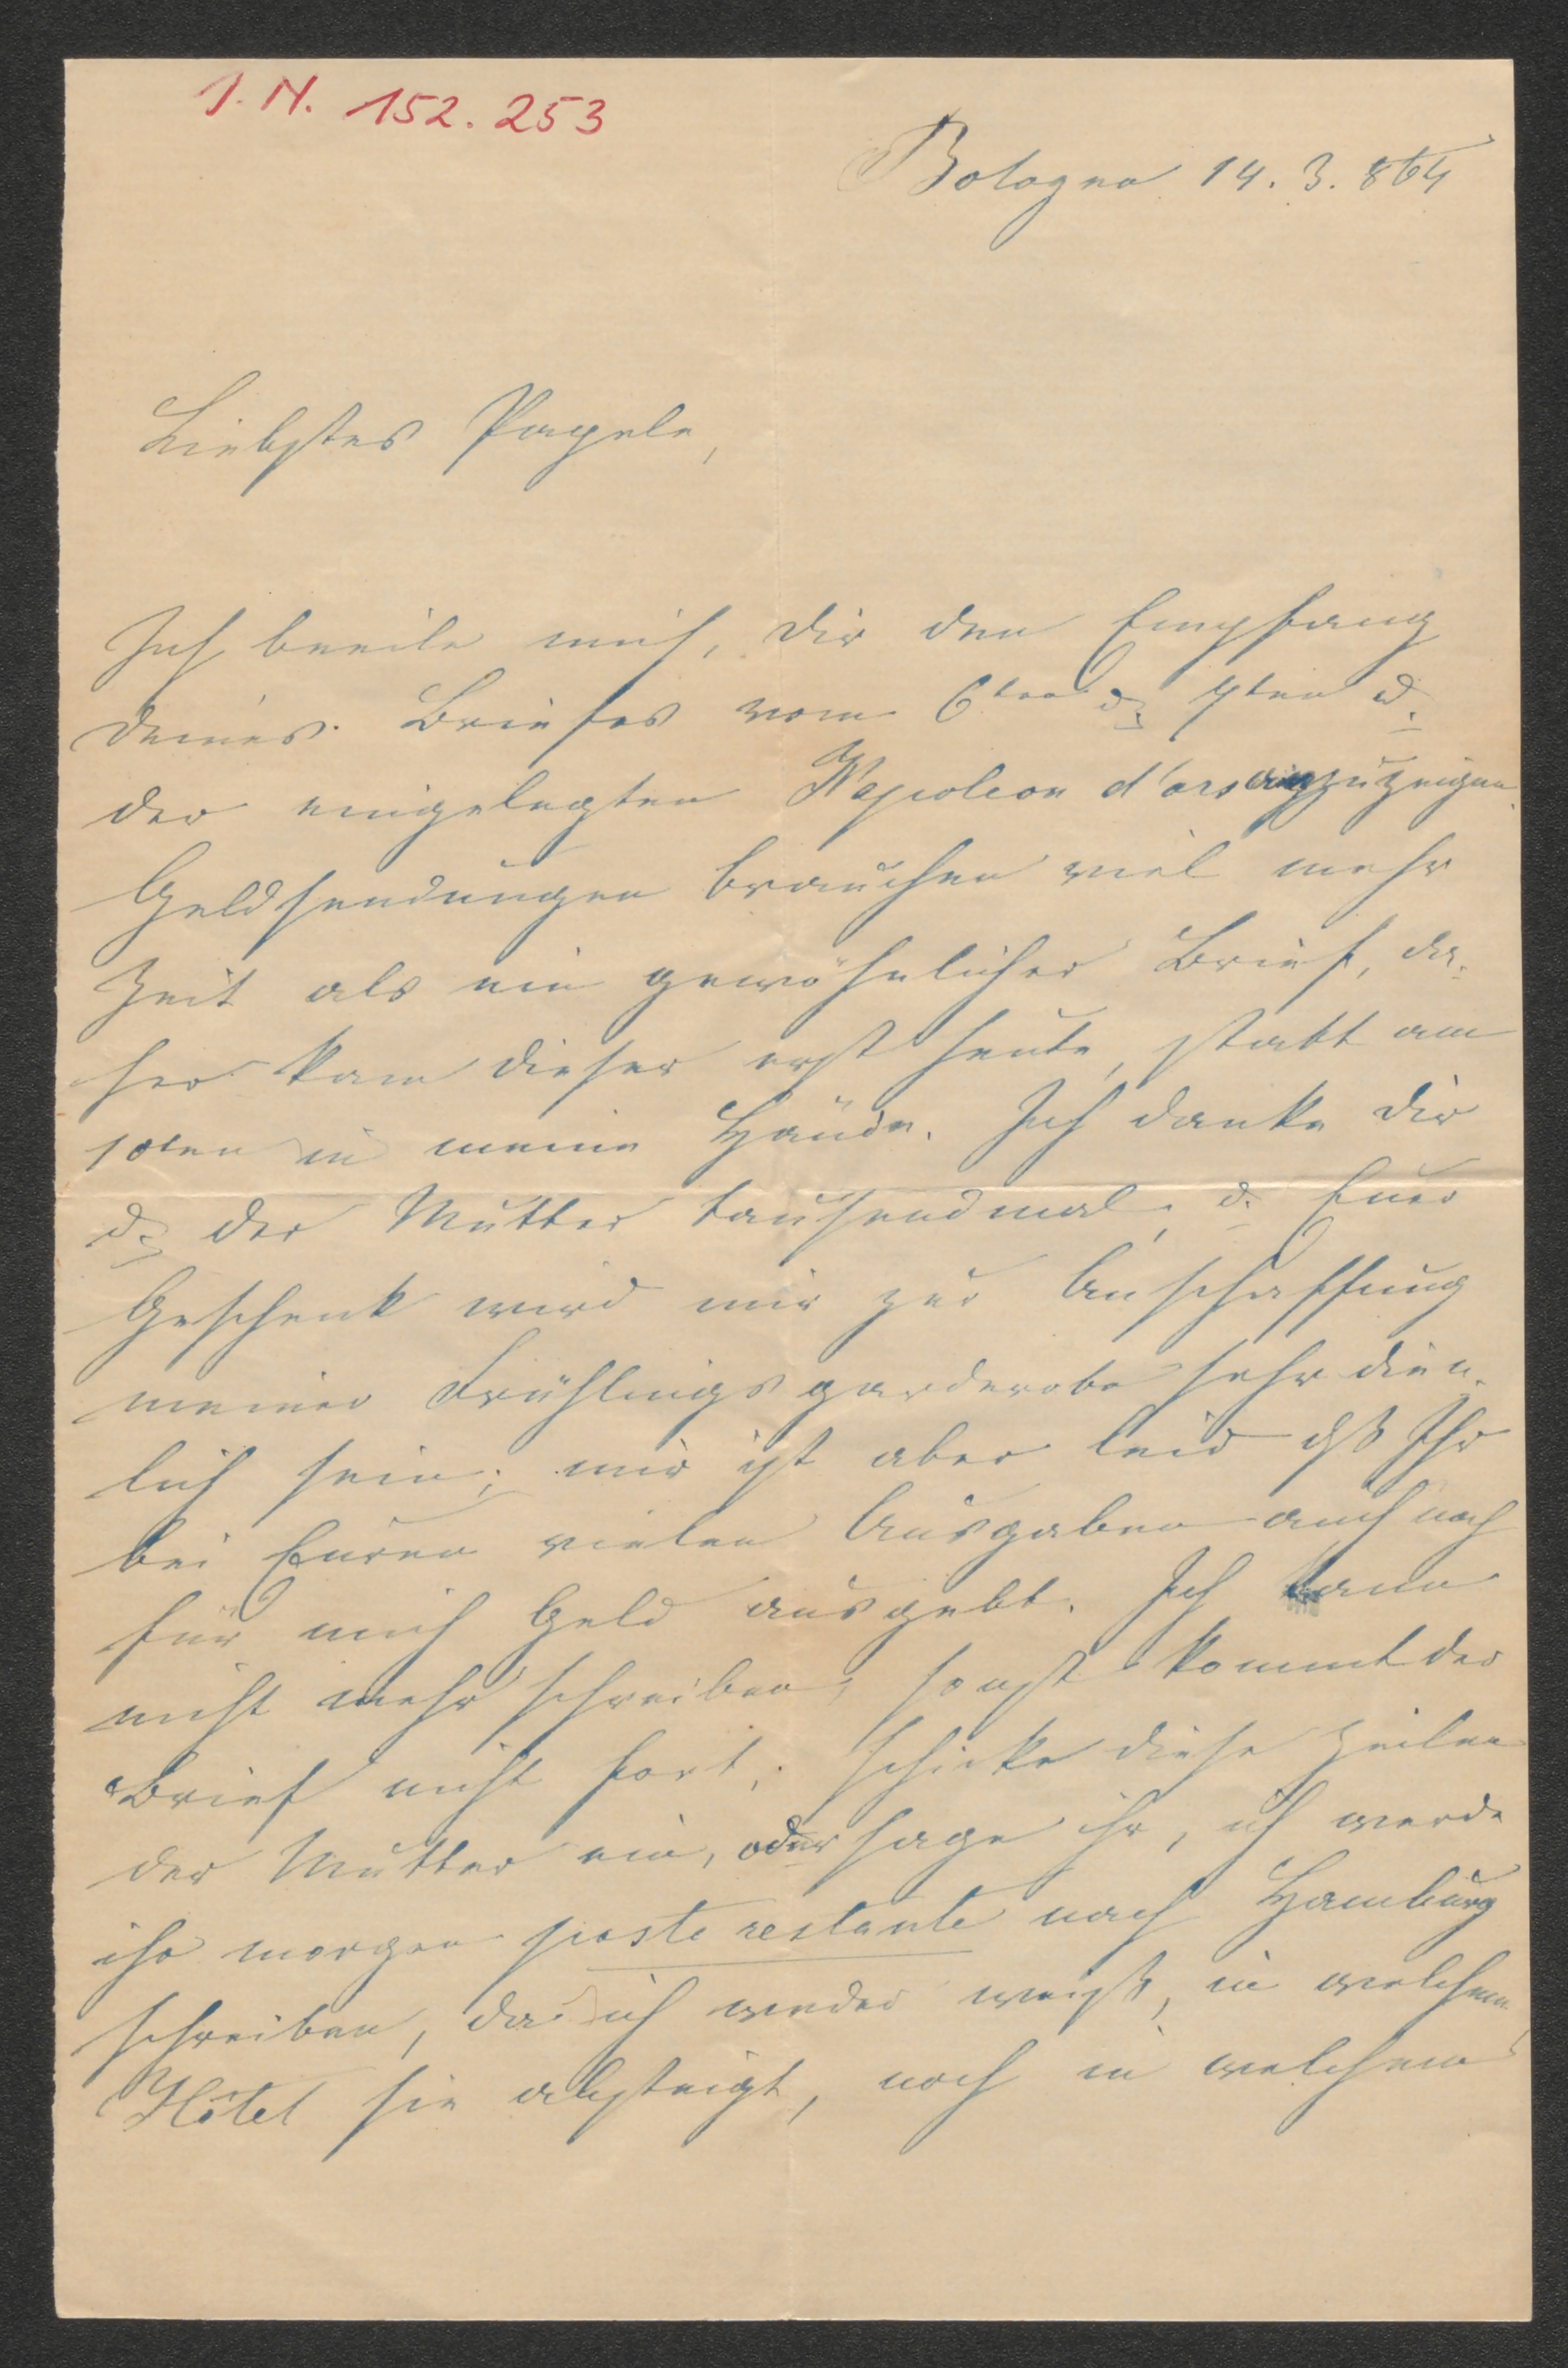 I. N. 152.253
Bologna 14. 3. 864
Liebstes Papele,
Ich beeile mich, Dir den Empfang
deines Briefes vom 6ten d. 7ten u.
der eingelegten Napoleon d'ors anzuzeigen.
Geldsendungen brauchen viel mehr
Zeit als ein gewöhnlicher Brief, da-
her kam dieser erst heute, statt am
10ten in meine Hände. Ich danke Dir
u. der Mutter tausendmal, u. Euer
Geschenk wird mir zur Anschaffung
meiner Frühlingsgarderobe sehr dien-
lich sein; mir ist aber leid dß Ihr
bei Euren vielen Ausgaben auch noch
für mich Geld ausgebt. Ich kann
nicht mehr schreiben, sonst kommt der
Brief nicht fort; schicke diese Zeilen
der Mutter ein, oder sage ihr, ich werde
ihr morgen poste restante nach Hamburg
schreiben, da ich weder weiß, in welchem
Hôtel sie absteigt, noch in welchem